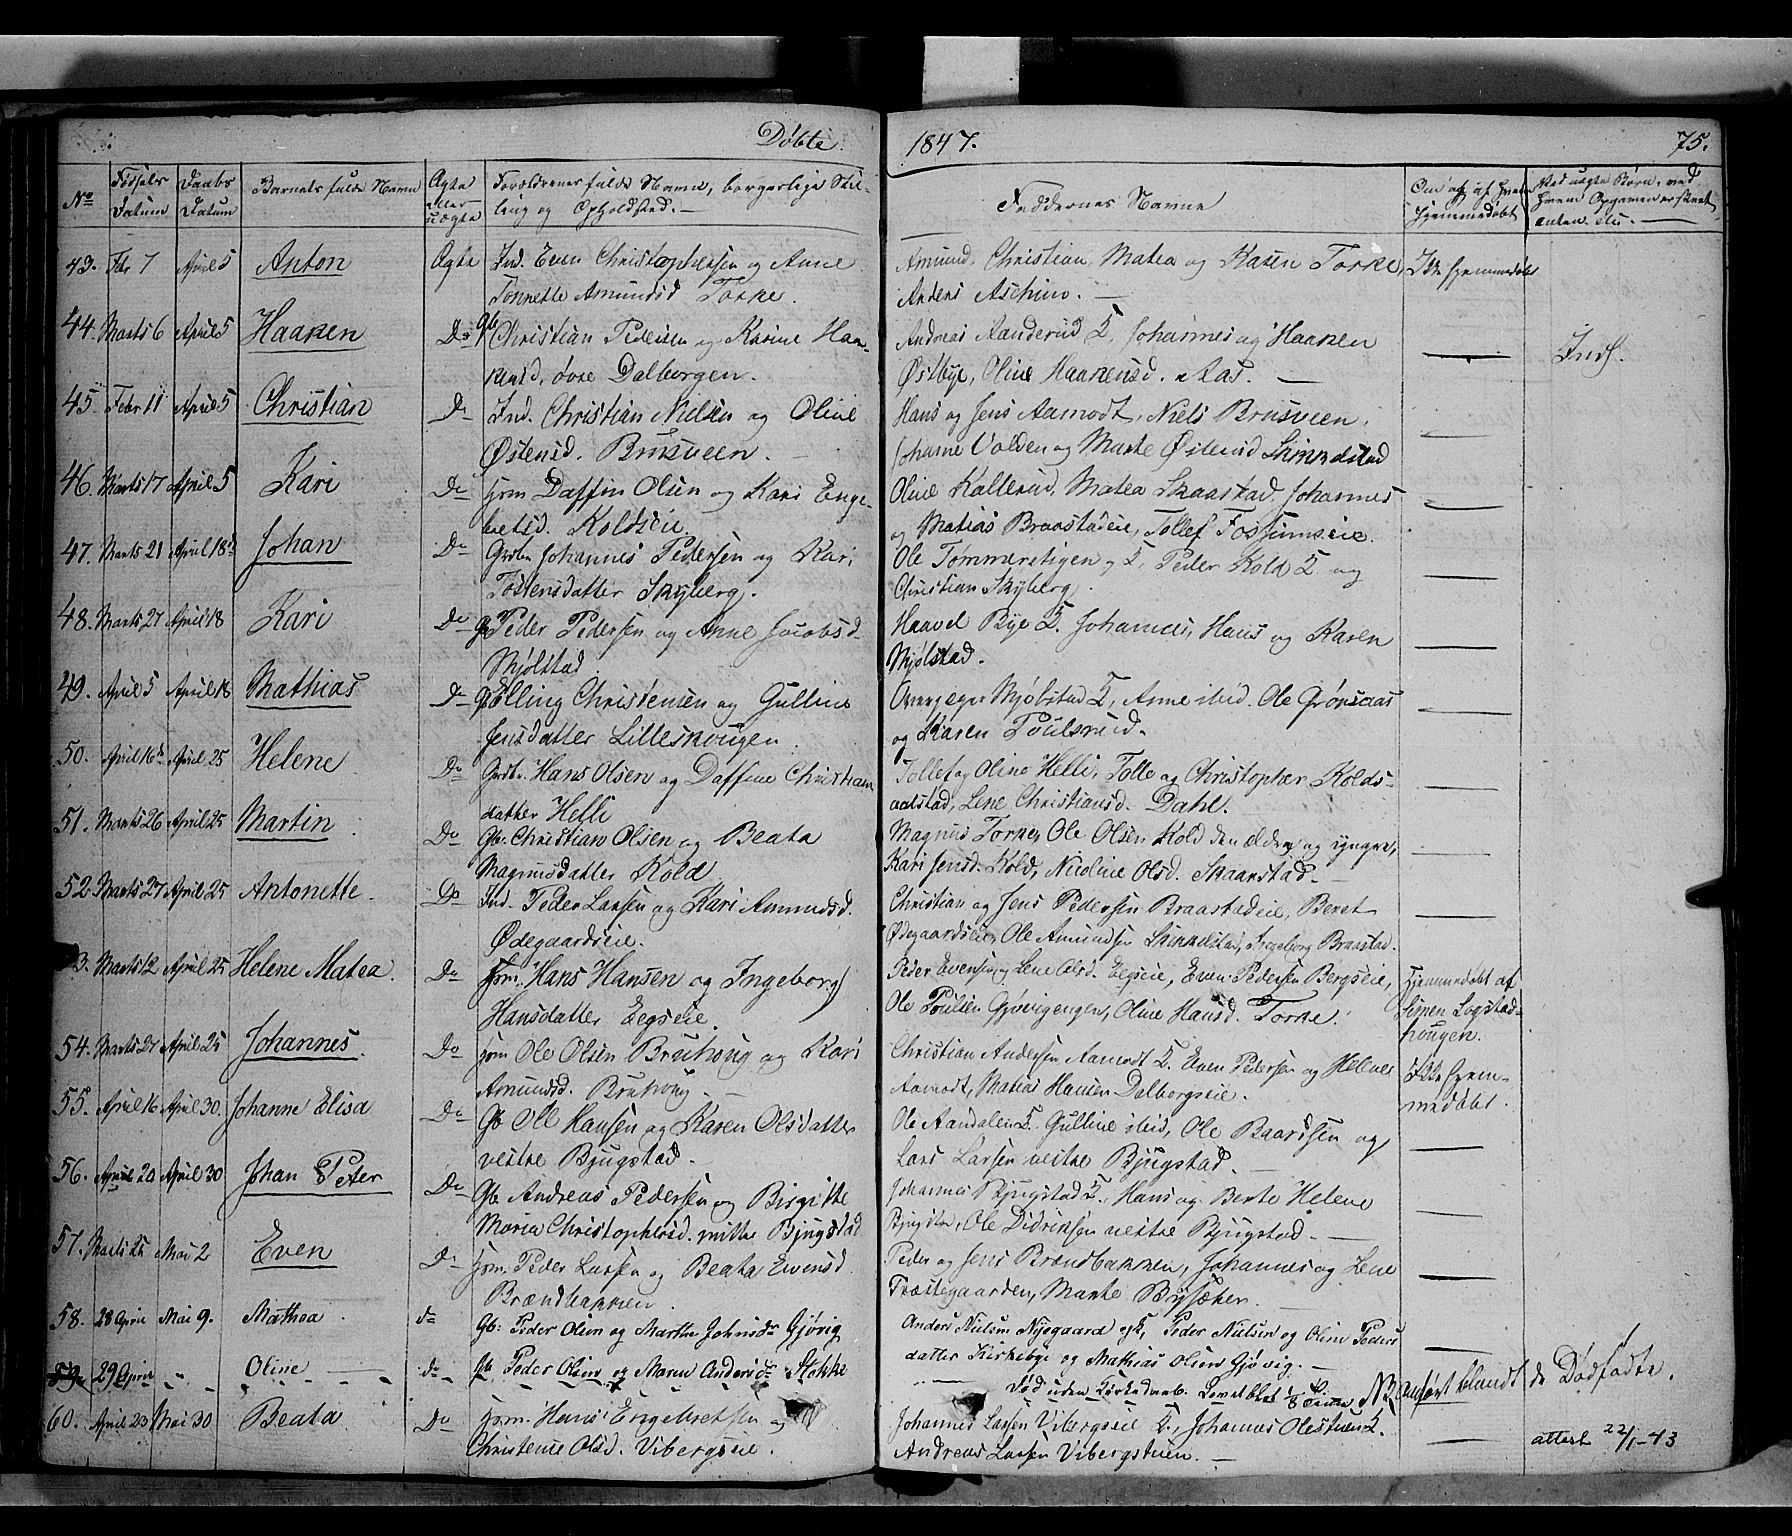 Døbte.
No
Fødsels Datum
Daabs Datum
Barnets fulde Navn
Ægte eller uægte
Forældrenes fulde Navn, borgerlige Stil-
ling og Opholdsted. —
43. Febr 7 April 5 Anton Ægte Ind. Even Christophersen og Anne
Tonnette Amundsd Torke.
44. Marts 6 April 5 Haaken Do Gb Christian Pedersen og Karine Haa-
kensd, øvre Dalborgen.
45. Febr 11 April 5 Christian Do Ind. Christian Nielsen og Oline
Østensd. Brusveen. —
46. Marts 17 April 5 Kari Do Hsm Daffin Olsen og Kari Enge-
bretsd. Koldseie.
47. Marts 21 April 18 Johan Do Gaardbr Johannes Pedersen og Kari
Tostensdatter Skyberg.
48. Marts 27 April 18 Kari Do Gb Peder Pedersen og Anne Jacobsd
Mjølstad
49. April 5 April 18 Mathias Do Gb Elling Christensen og Gulline
Jensdatter Lilleskougen.
50. April 16 April 25 Helene Do Gaardbr. Hans Olsen og Daffine Christians
datter Helli
51. Marts 26 April 25 Martin Do Gb. Christian Olsen og Beata
Magnusdatter Kold.
52 Marts 27 April 25 Antonette. Do Ind. Peder Larsen og Kari Amundsd.
Ødegaardseie.
3. Marts 12 April 25 Helene Matea. Do Hsm. Hans Hansen og Ingeborg
Hansdatter Eegseie.
54. Marts 27 April 25 Johannes. Do Hsm Ole Olsen Bruhoug og Kari
Amundsd. Bruhoug. —
55. April 16 April 30. Johanne Elisa Do Gb Ole Hansen og Karen Olsdatter
vestre Bjugstad.
56. April 20 April 30 Johan Peter Do Gb. Andreas Pedersen og Birgitte
Maria Christophersd. mittre Bjugstad
57. Marts 25 Mai 2 Even Do Hsm. Peder Larsen og Beata Evensd.
Brændbakken.
58. 28 April Mai 9. Mathea. do Gb: Peder Olsen og Marthe Johnsdr Gjøvig
59. 29 April " " Oline — do Gb Peder Olsen og Maren Andersdr Stokke
60. April 23 Mai 30 Beata Do Hsm. Hans Engebretsen og
Christense Olsd. Vibergseie.
1847. 75.
Faddernes Navne
Om og af hvem Hjemmedøbt
Ved uægte Børn, ved hvem Opgaven er skeet
Amund, Christian, Matea og Karen Torke, Ikke hjemmedøbt
Anders Aschim. —
Andreas Aanderud K, Johannes og Haaken — Inds.
Østbye, Oline Haakensd. Aas. —
Hans og Jens Aamodt, Niels Brusveen, —
Johanne Volden og Marte Østensd Skinkelstad
Oline Kallerud, Matea Skaarstad, Johannes —
og Matias Braastadeie, Tollef Fossumseie.
Ole Tømmerstigen g K, Peder Kold K og —
Christian Skyberg.
Haavel Bye K. Johannes, Hans og Karen —
Mjølstad.
Mjølstad K, Anne ibid. Ole Grønaas —
og Karen Poulsrud.
Tollef og Oline Helli, Tolle og Christopher Kolds- —
Lene Christiansd. Dahl.
Magnus Torke, Ole Olsen Kold den ældre og yngre, —
Kari Jensd. Kold, Nicoline Olsd. Skaarstad. —
Christian og Jens Pedersen Braastadeie, Beret —
Ødegaardseie, Ole Amundsen Skinkelstad, Ingeborg Braastad.
Peder Evensen og Lene Olsd. Eegseie, Even Pedersen Bergseie, Hjemmedøbt af
Ole Poulsen Gjøvigengen, Oline Hansd. Torke. Simen Logstad-
hougen.
Christian Andersen Aamodt K. Even Pedersen og Helene Ikke hjem-
Aamodt, Matias Hansen Dalborgseie. medøbt.
Ole Aandalen K. Gulline ibid, Ole Baardsen og —
Lars Larsen vestre Bjugstad. —
Johannes Bjugstad K, Hans og Berte Helene —
Bjugstad, Ole Didriksen vestre Bjugstad. —
Peder og Jens Brændbakken, Johannes og Lene —
Præstegaarden, Marte Bysæher. —
Anders Nielsen Nyegaard K, Peder Nielsen og Oline Peders —
datter Kirkebye og Mathias Olsen Gjøvig. —
Død uden NB. anført blandt de Dødfødte.
Johannes Larsen Vibergseie K., Johannes Olestuen K. —
Andreas Larsen Vibergstuen. — attest 22/1-43